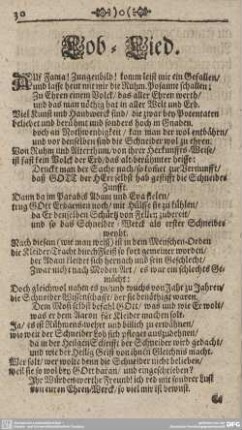 30
Lob-Lied.
Auf Fama! Zungenbild! komm leist mir ein Gefallen,
und lasse heut mit mir die Ruhm-Posaune schallen;
Zu Ehren einem Volck, das aller Ehren werth,
und das man nöthig hat in aller Welt und Erd.
Viel Kunst und Handwerck sind, die zwar bey Potentaten
beliebet und berühmt und sonders hoch in Gnaden,
doch an Nothwendigkeit, kan man der wol entbähren,
und vor denselben sind die Schneider wol zu ehren.
Von Ruhm und Alterthum, von ihrer Herkunfts-Weise,
ist fast kein Volck der Erd, das alt-berühmter heisse:
Druckt man der Sache nach, so
daß GOTT der HErr selbst hab gestifft die Schneider-
Zunfft.
Dann da im Paradiß Adam und Eva fielen,
trug GOtt Erbarmen noch, mit Hülffe sie zu fühlen,
da Er denselben Schürtz von Fellen zubereit,
und so das Schneider-Werck als erster Schneider
weyht.
Nach diesem (wie man weiß) ist in dem Menschen-Orden
die Kleider-Tracht durch Fleiß so fort gemeiner worden,
der Adam kleidet sich hernach und sein Geschlecht,
Zwar nicht nach Moden Art, es war ein schlechtes Ge-
mächt.
Doch gleichwol nahm es zu, und wuchs von Jahr zu Jahren,
die Schneider Wissenschafft, der sie benöthiget waren,
Dem Mose selbst befahl GOtt, was und wie Er wolt,
was er dem Aaron für Kleider machen solt.
Ja, es ist Rühmens-wehrt und billich zu erwähnen,
wie weit der Schneider Lob sich pfleget auszudehnen,
da in der Heiligen Schrifft der Schneider wird gedacht,
und wie der Heilig Geist von ihnen Gleichnus macht.
Wer solt, wer wolte denn die Schneider nicht belieben,
weil sie so wol bey GOtt daran, und eingeschrieben?
Ihr Würdens-werthe Freund! ich red mit sondrer Lust
von euren Ehren-Werck, so viel mir ist bewust.